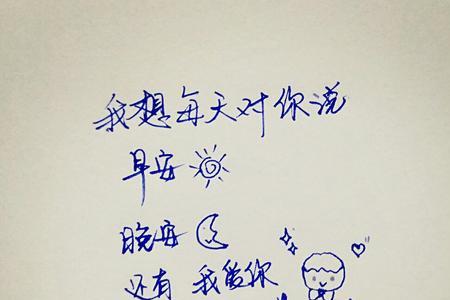 我想每天对你说
早安
晚安
还有 我爱你